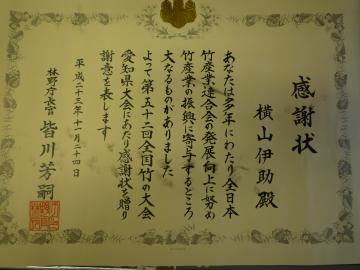 感謝状
横山伊助殿
あなたは多年にわたり全日本
竹産業連合会の発展向上に努め
竹産業の振興に寄与するところ
大なるものがありました
よって第五十二回全国竹の大会
愛知県大会にあたり感謝状を贈り
謝意を表します
平成二十三年十一月二十四日
林野庁長官 皆川芳嗣